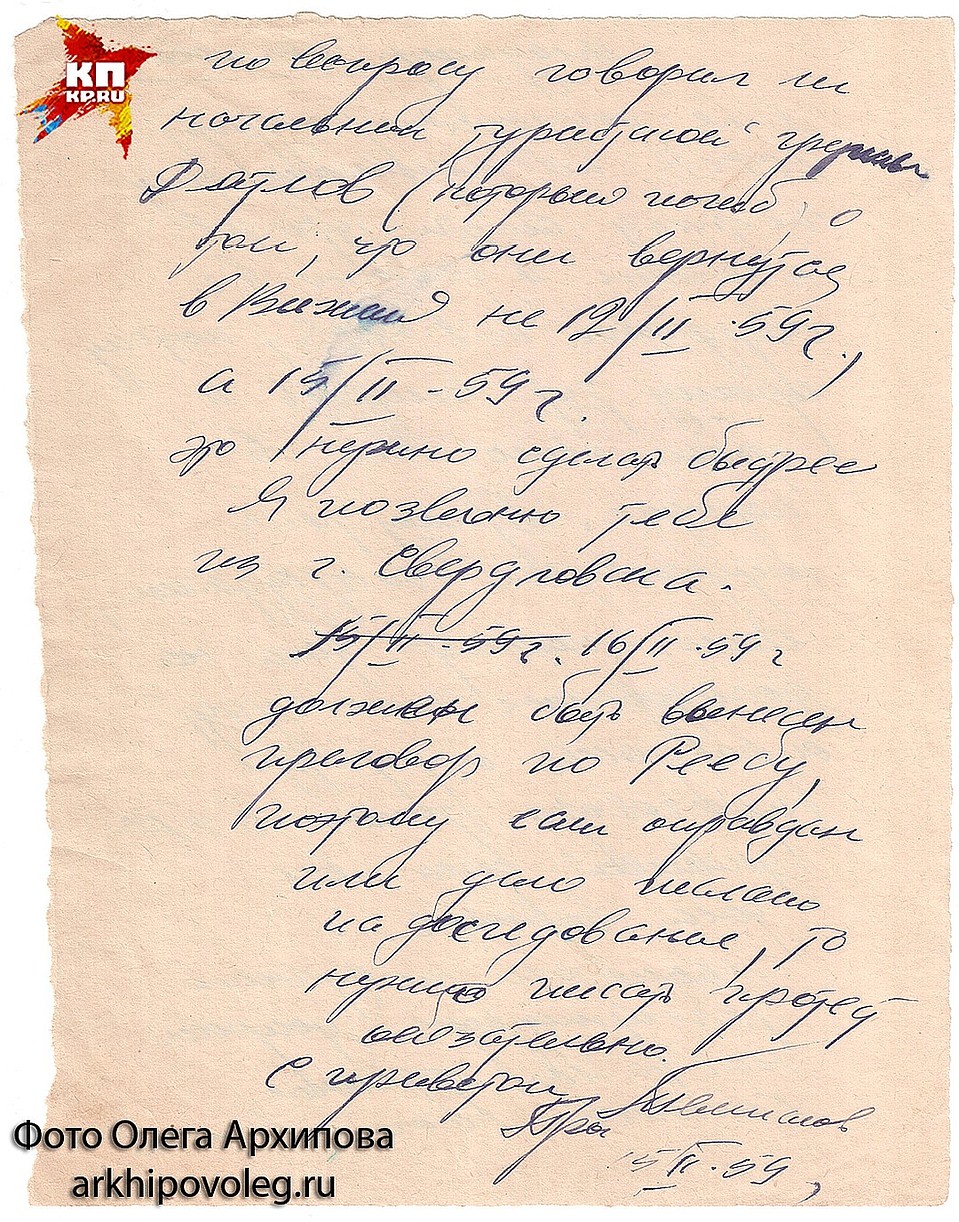 КП
KP.RU
по вопросу говорил ли
начальник туристской группы
Дятлов (который погиб), о
том, что они вернутся
в Вижай не 12/II-59г.,
а 15/II-59г.
это нужно сделать быстрее
Я позвоню тебе
из г. Свердловска.
15/II-59г. 16/II-59г
должен быть вынесен
приговор по Реебу,
поэтому если оправдан
или дело послано
на доследование, то
нужно писать протест
обязательно.
С приветом
Пр Темпалов
15/II-59,
Фото Олега Архипова
arkhipovoleg.ru